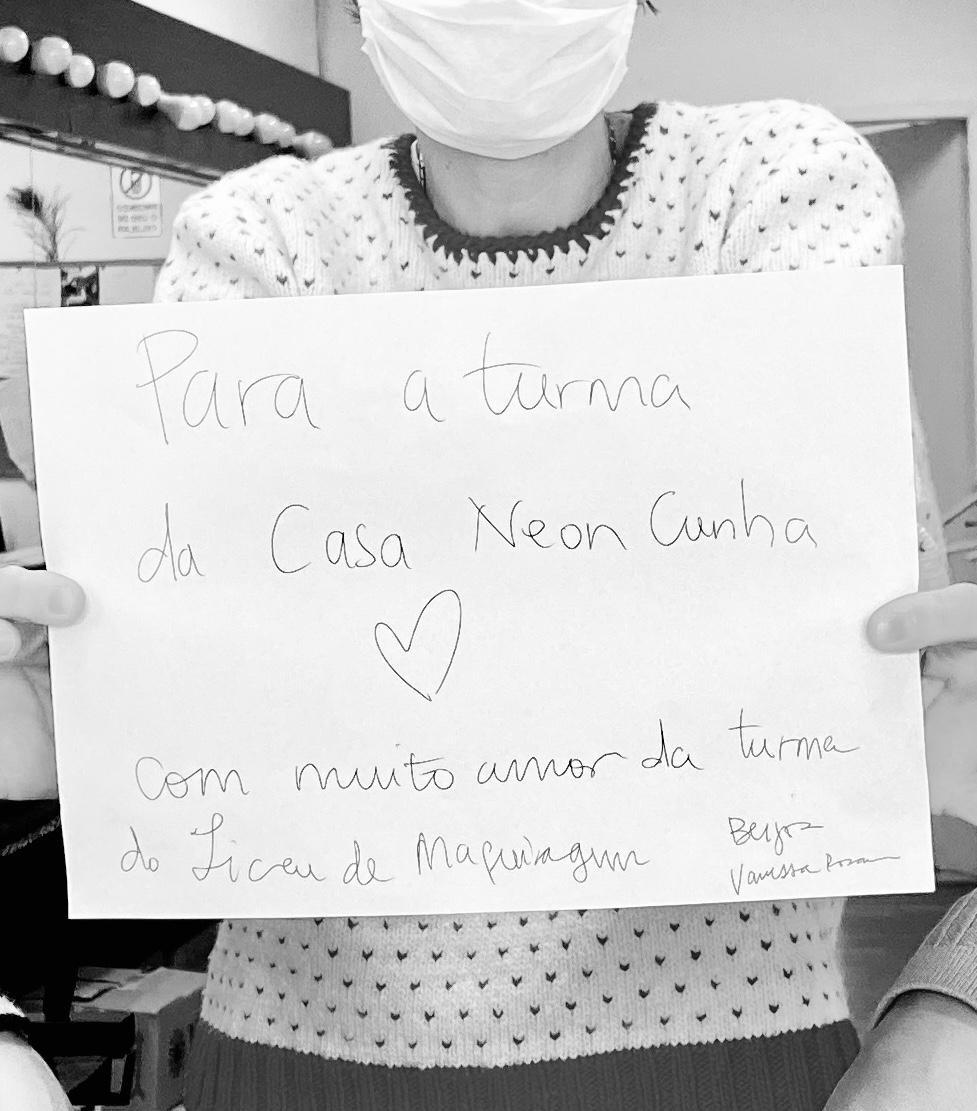 Para a turma
da Casa Neon Cunha
com muito amor da turma
do Liceu de Maquiagem
Beijos
Vanessa Rozan